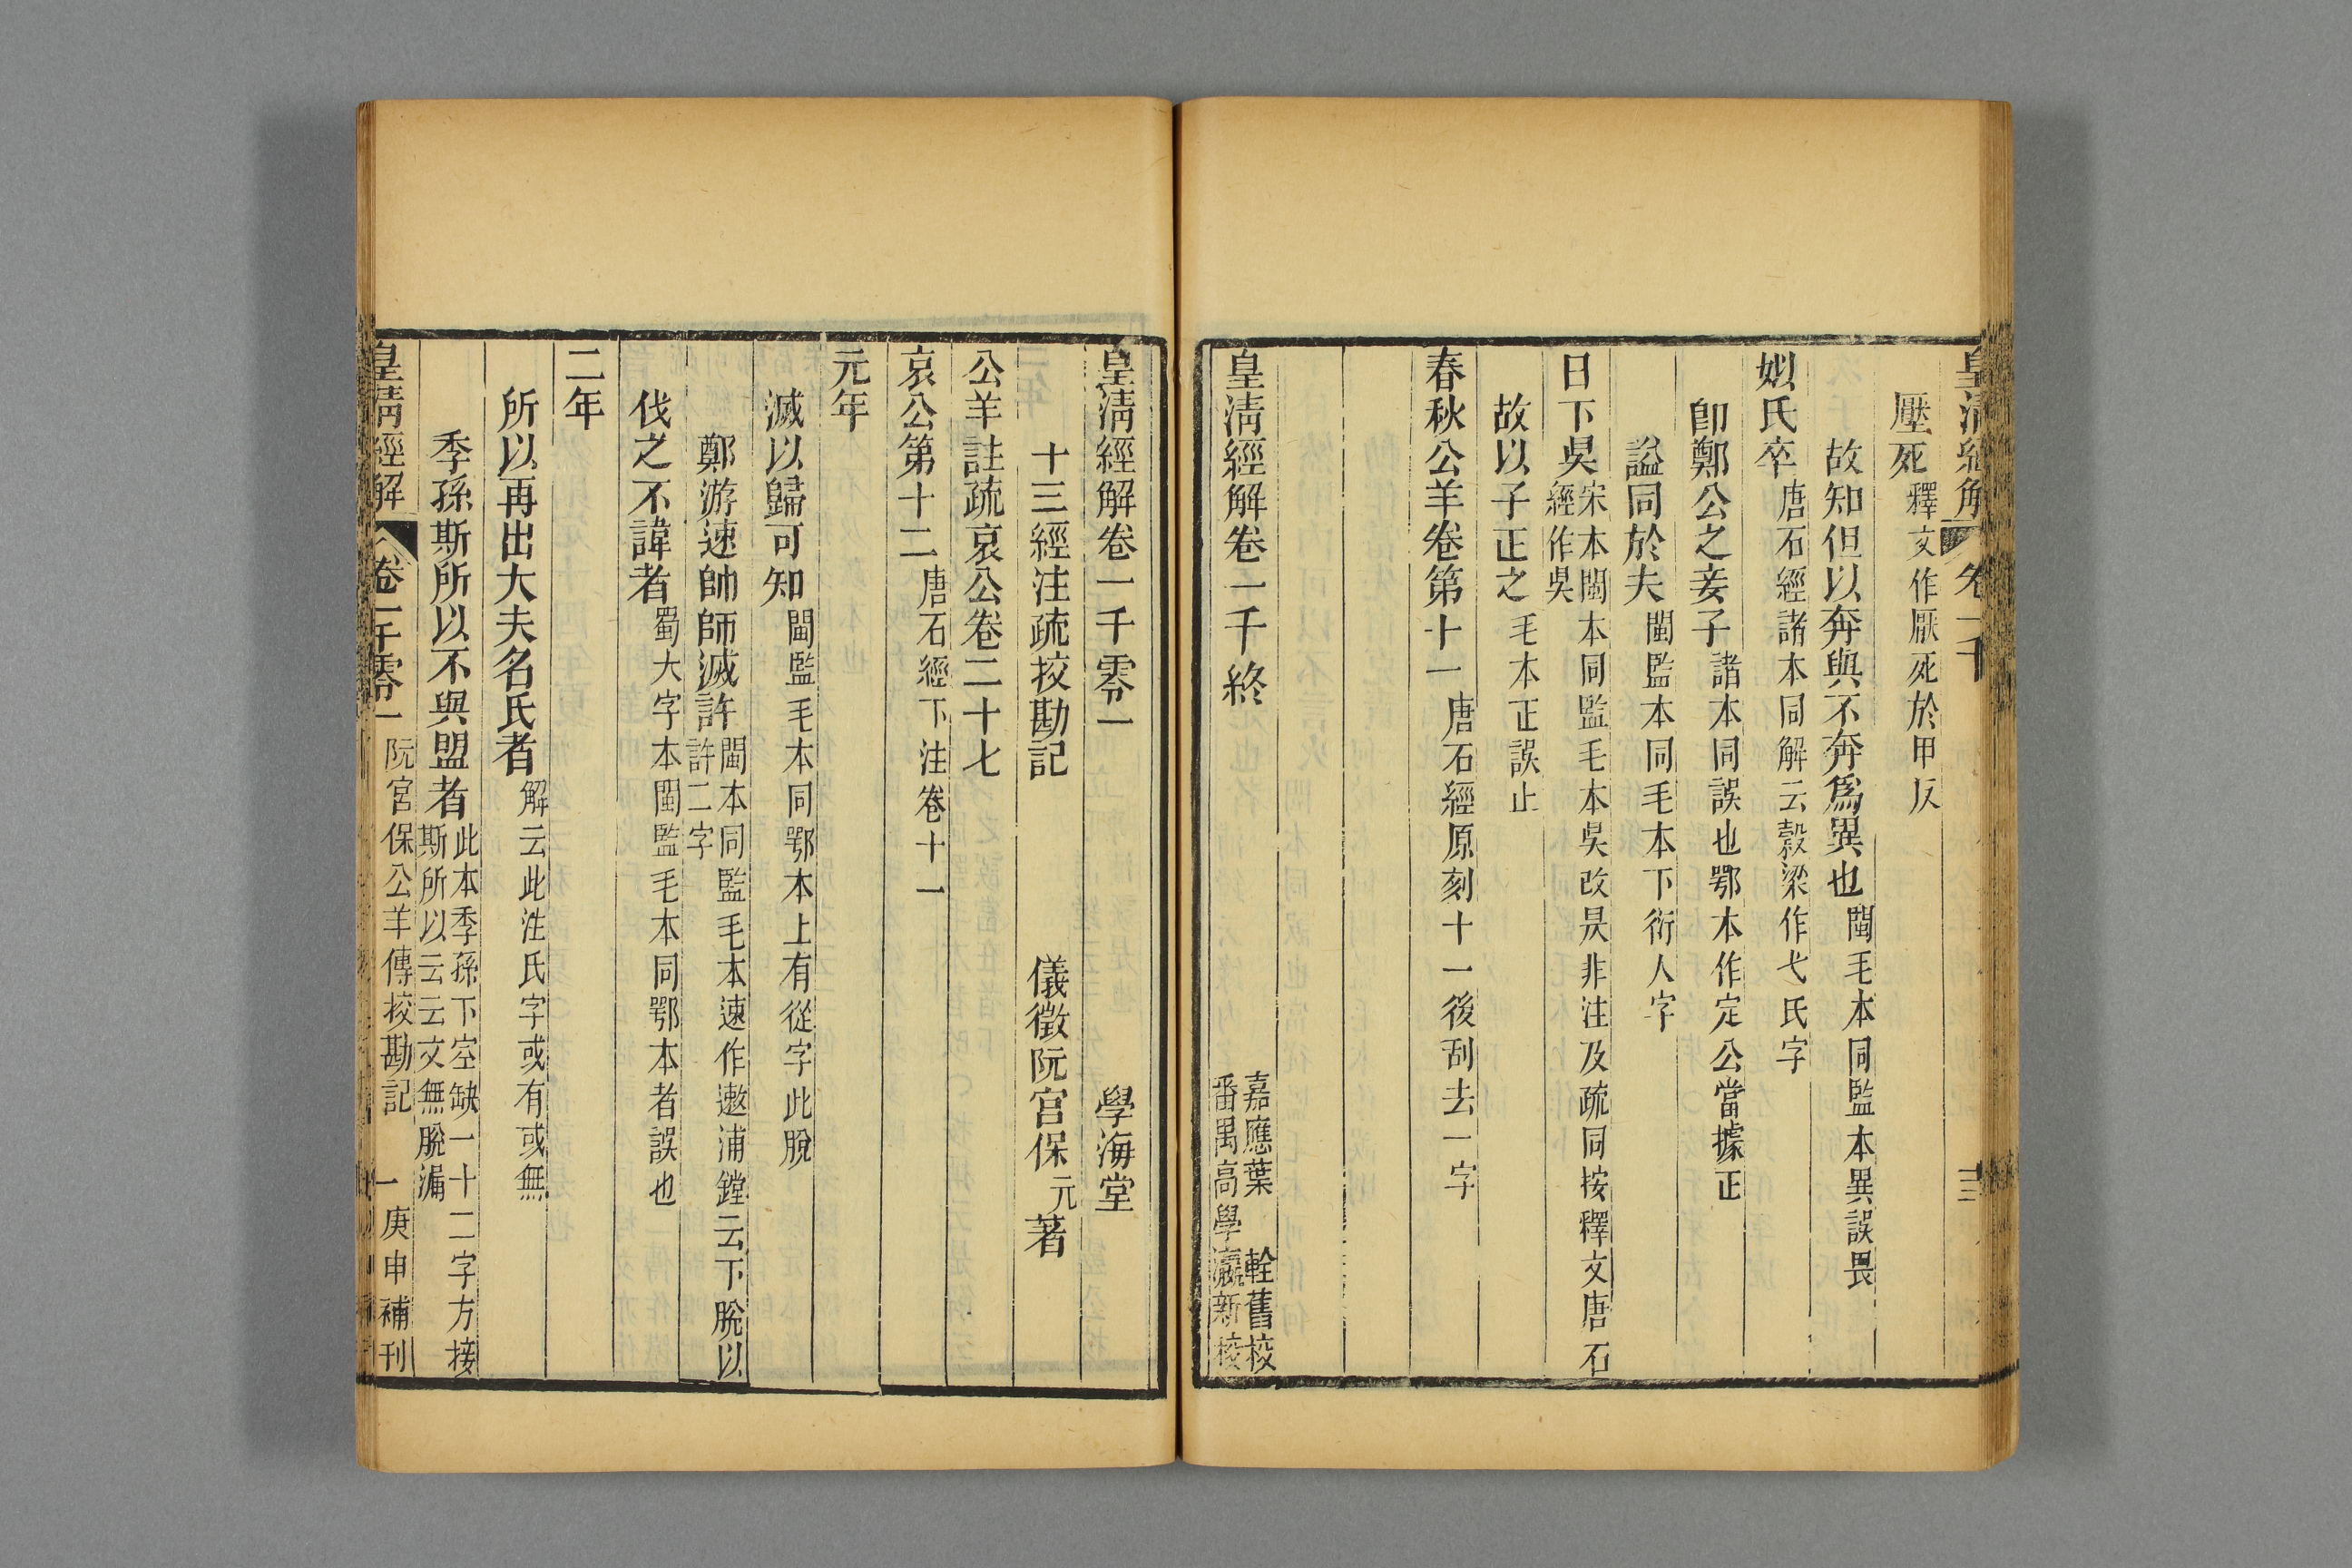 皇清經解 卷一千 十三
壓死釋文作厭死於甲反
故知但以奔與不奔爲異也閩毛本同監本異誤畏
姒氏卒唐石經諸本同解云穀梁作弋氏字
卽鄭公之妾子諸本同誤也鄂本作定公當據正
謚同於夫閩監本同毛本下衍人字
日下吳宋本閩本同監毛本吳改昃非注及疏同按釋文唐石
經作吳
故以子正之毛本正誤止
春秋公羊卷第十一唐石經原刻十一後刮去一字
皇清經解卷一千終
嘉應葉 輇舊校
番禺高學瀛新校
皇清經解卷一千零一 學海堂
十三經注疏挍勘記 儀徵阮宮保元著
公羊註疏哀公卷二十七
哀公第十二唐石經下注卷十一
元年
滅以歸可知閩監毛本同鄂本上有從字此脫
鄭游速帥師滅許閩本同監毛本速作遬浦鏜云下脫以
許二字
伐之不諱者蜀大字本閩監毛本同鄂本者誤也
二年
所以再出大夫名氏者解云此注氏字或有或無
季孫斯所以不與盟者此本季孫下空缺一十二字方接
斯所以云云文無脫漏
皇清經解 卷一千零一 阮宮保公羊傳挍勘記 一 庚申補刊